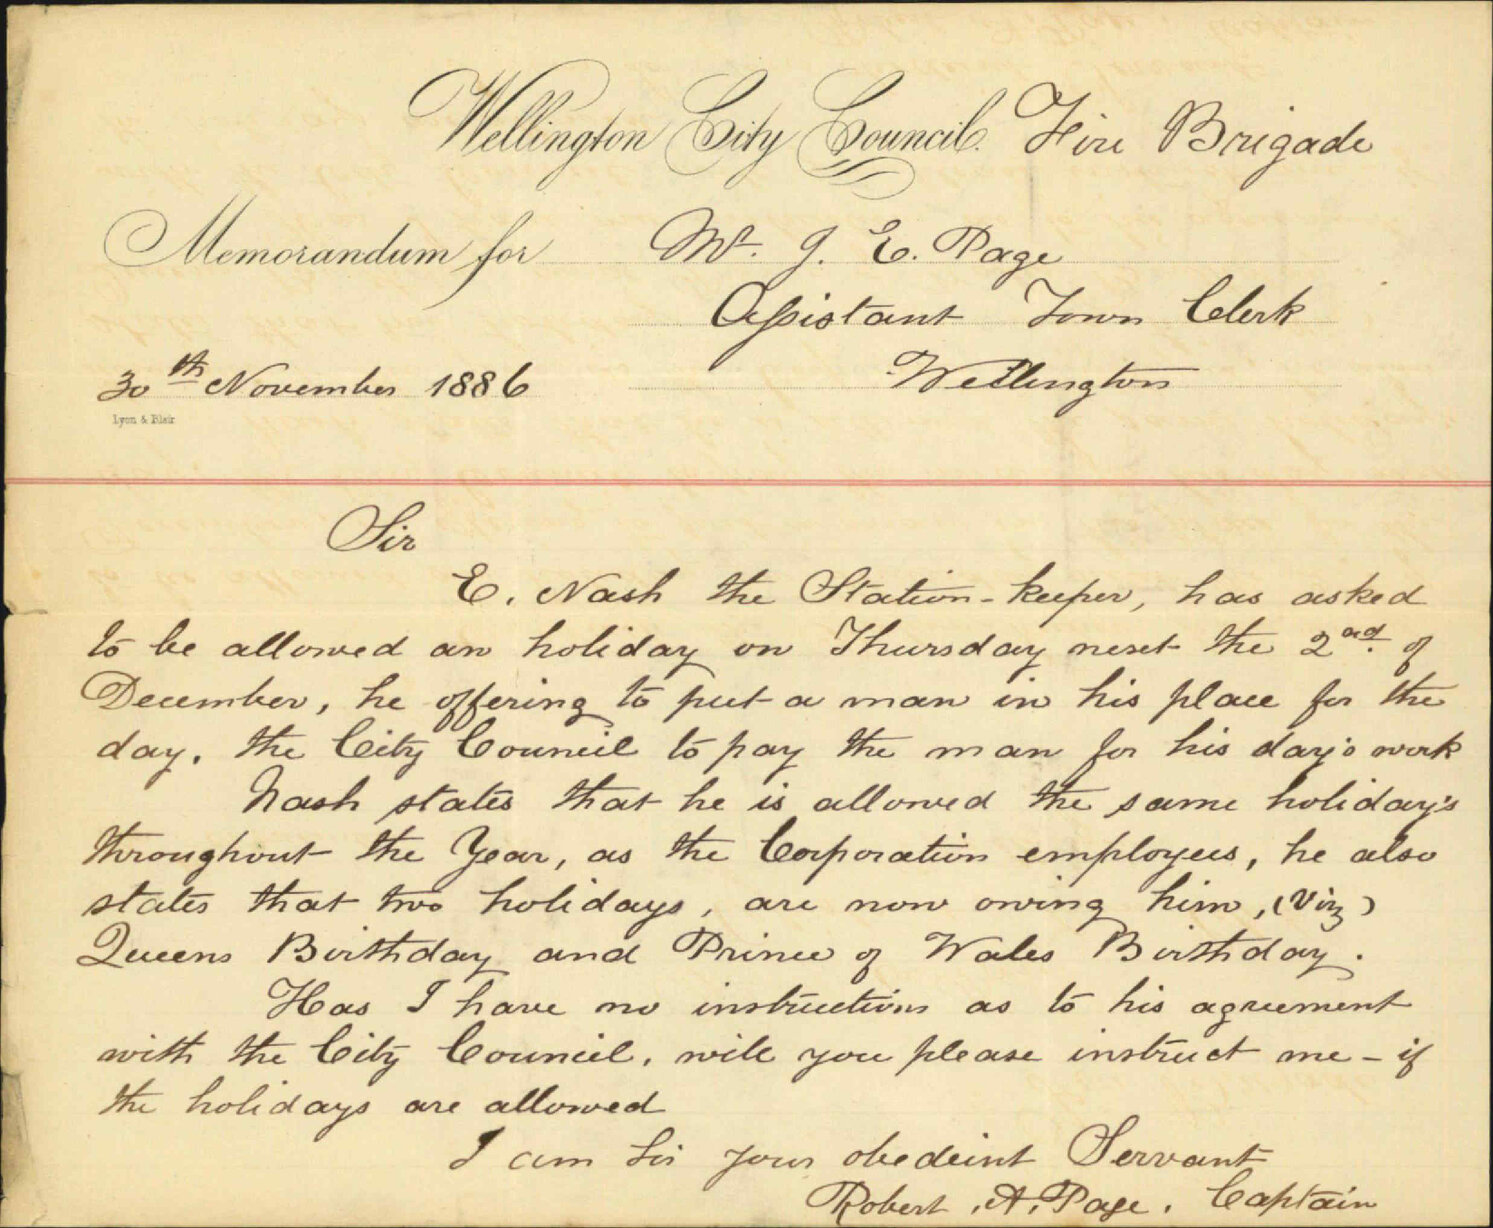 Wellington City Council. Fire Brigade
Memorandum for Mr. J. E. Page
Assistant Town Clerk
Wellington
30th November 1886
Lyon & Blair
Sir
E. Nash the Station-keeper, has asked
to be allowed an holiday on Thursday next the 2nd. of
December, he offering to put a man in his place for the
day, the City Council to pay the man for his day's work
Nash states that he is allowed the same holiday's
throughout the Year, as the Corporation employees, he also
states that two holidays, are now owing him, (Viz)
Queens Birthday and Prince of Wales Birthday.
Has I have no instructions as to his agreement
with the City Council, will you please instruct me - if
the holidays are allowed
I am Sir your obedeint Servant
Robert. A. Page. Captain